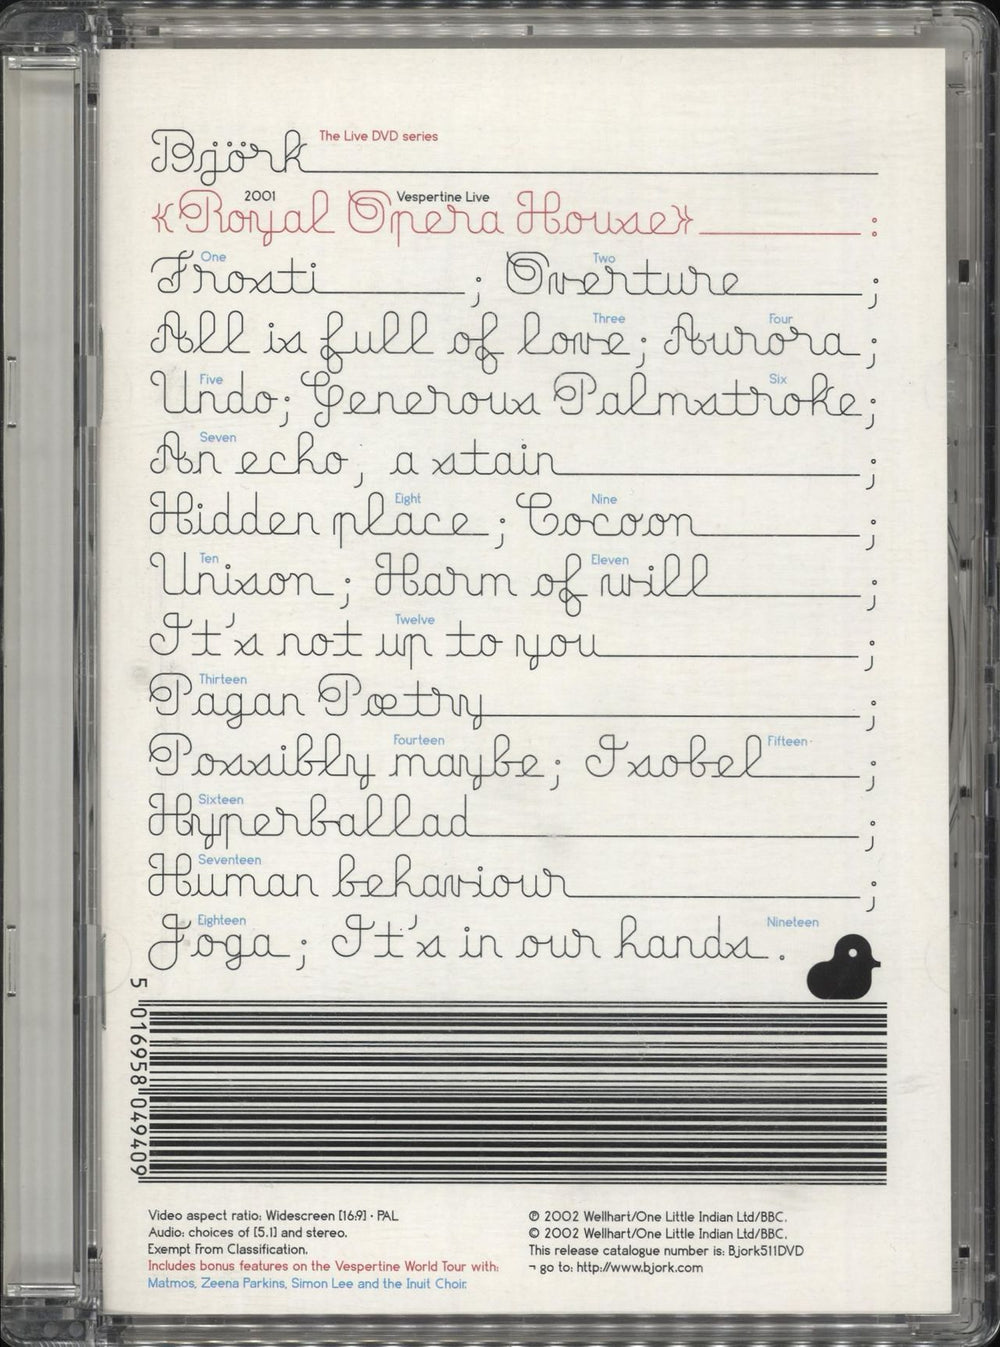 Björk The Live DVD series
2001 Vespertine Live
«Royal Opera House» :
One Two
Frosti ; Overture ;
Three Four
All is full of love; Aurora ;
Five Six
Undo; Generous Palmstroke;
Seven
An echo, a stain ;
Eight Nine
Hidden place ; Cocoon ;
Ten Eleven
Unison ; Harm of will ;
Twelve
It's not up to you ;
Thirteen
Pagan Poetry ;
Fourteen Fifteen
Possibly maybe ; Isobel ;
Sixteen
Hyperballad ;
Seventeen
Human behaviour ;
Eighteen Nineteen
Joga ; It's in our hands .
5 016958 049409
Video aspect ratio: Widescreen [16:9] · PAL
Audio: choices of [5.1] and stereo.
Exempt From Classification.
Includes bonus features on the Vespertine World Tour with:
Matmos, Zeena Parkins, Simon Lee and the Inuit Choir.
℗ 2002 Wellhart/One Little Indian Ltd/BBC.
© 2002 Wellhart/One Little Indian Ltd/BBC.
This release catalogue number is: Bjork511DVD
¬ go to: http://www.bjork.com